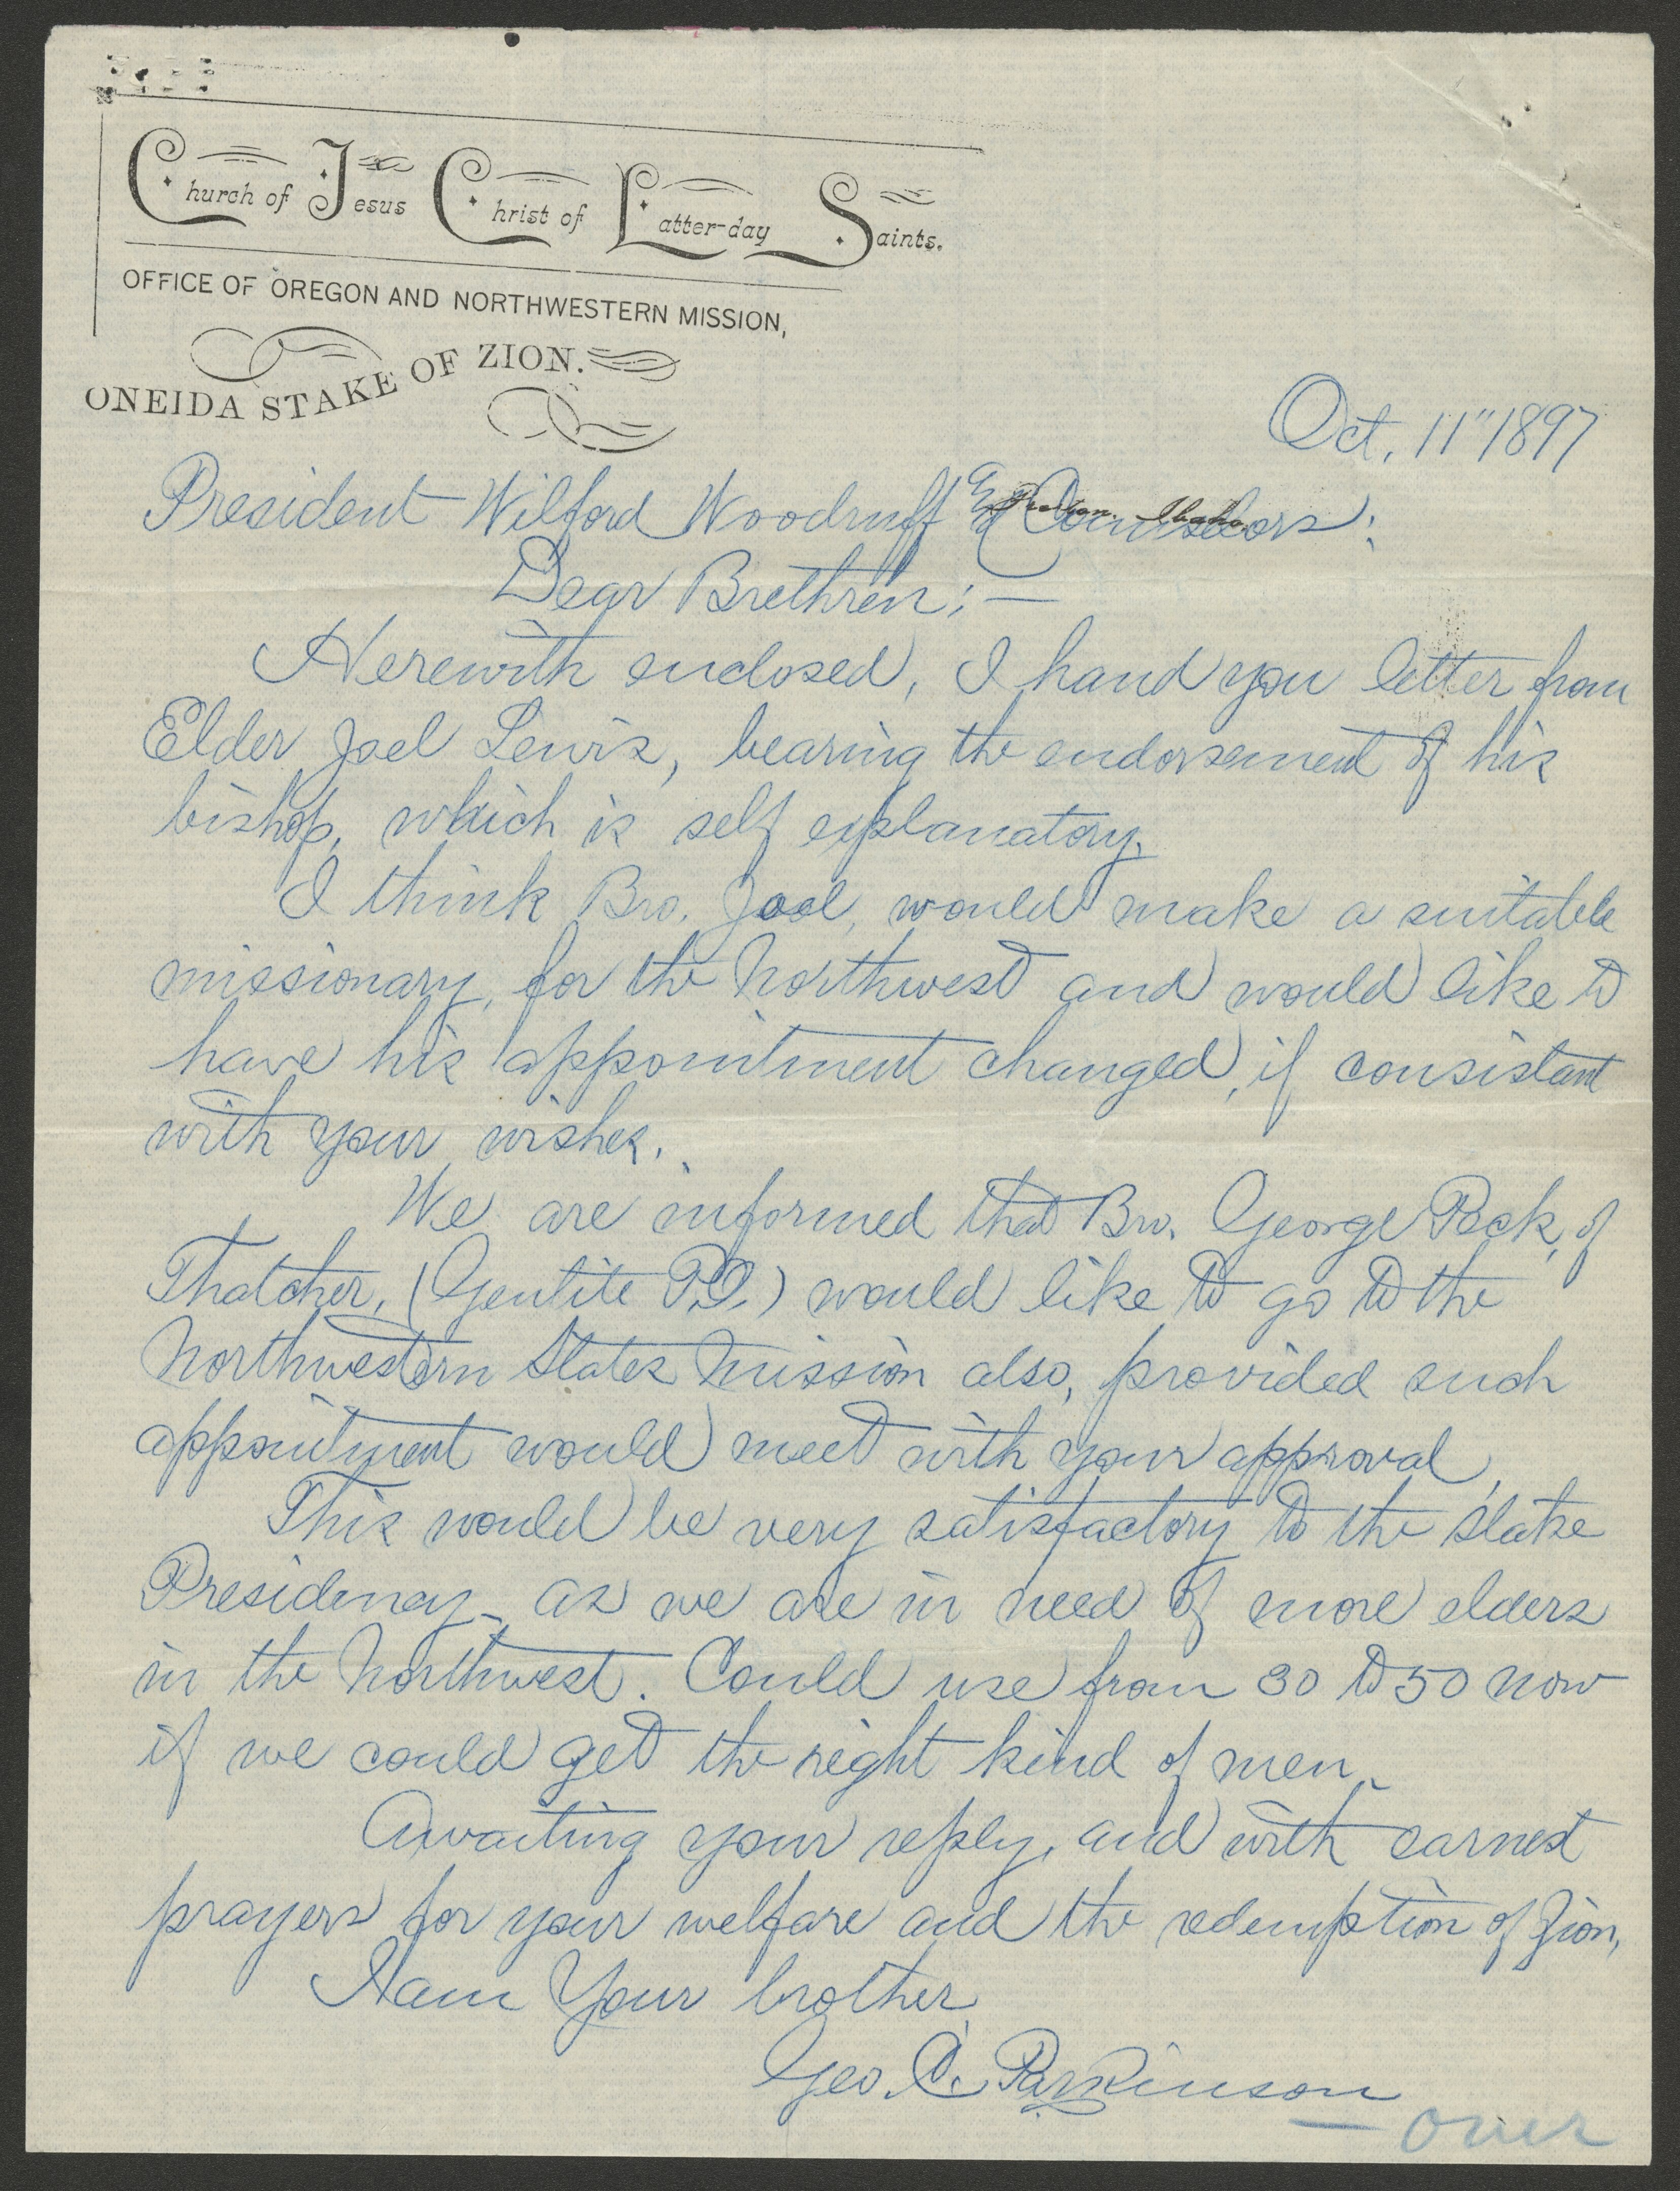 Church of Jesus Christ of Latter-day Saints.
OFFICE OF OREGON AND NORTHWESTERN MISSION,
ONEIDA STAKE OF ZION.
Oct. 11" 1897
Preston, Idaho.
President Wilford Woodruff & Counselors:
Dear Brethren:—
Herewith enclosed, I hand you letter from
Elder Joel Lewis, bearing the endorsement of his
bishop, which is self explanatory.
I think Bro. Joel, would make a suitable
missionary, for the Northwest and would like to
have his appointment changed, if consistant
with your wishes.
We are informed that Bro. George Peck, of
Thatcher, (Gentile P.O.) would like to go to the
Northwestern States Mission also, provided such
appointment would meet with your approval,
This would be very satisfactory to the Stake
Presidency as we are in need of more elders
in the Northwest. Could use from 30 to 50 now
if we could get the right kind of men.
Awaiting your reply, and with earnest
prayers for your welfare and the redemption of Zion,
I am Your brother
Geo. C. Parkinson
— over